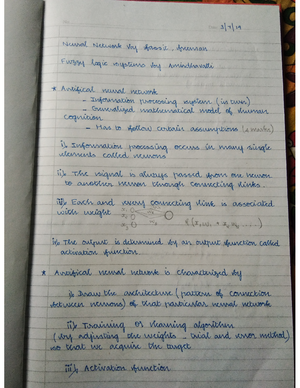 3/7/19
Neural Network by
Fuzzy logic systems by
* Artificial neural network
- Information processing system (is own)
- Generalised mathematical model of human
cognition.
- Has to follow certain assumptions (4 marks)
i) Information processing occurs in many single
elements called neurons
ii) The signal is always passed from one neuron
to another neuron through connecting links.
iii) Each and every connecting link is associated
with weight
iv) The output is determined by an output function called
activation function.
* Artificial neural network is characterized by
i) Draw the architecture (pattern of connection
between neurons) of that particular neural network
ii) Training or learning algorithm
(by adjusting the weights - trial and error method)
so that we acquire the target
iii) Activation function